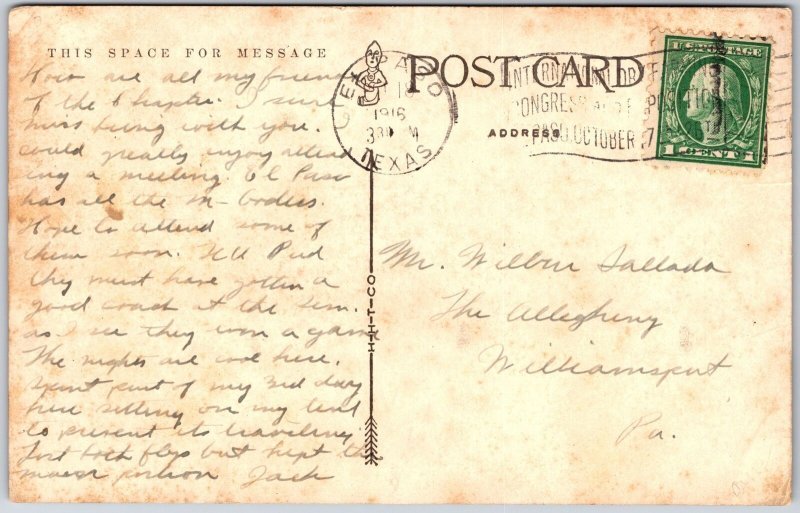 THIS SPACE FOR MESSAGE
How are all my friends
of the Chapter. I sure
miss being with you.
could greatly enjoy attend
ing a meeting. El Paso
has all the M- bodies.
Hope to attend some of
them soon.
they must have gotten a
good coach at the Sem.
as I see they won a game
The nights are cool here.
Spent part of my 3rd day
here sitting on my tent
to prevent its traveling
Lost both flys but kept the
major portion Jack
POST CARD
ADDRESS
EL PASO
1916
TEXAS
INTERNATIONAL
CONGRESS
EL PASO, OCTOBER
U.S. POSTAGE
1 CENT 1
H-H-T-CO
Mr. Wilbur Sallada
The Allegheny
Williamsport
Pa.